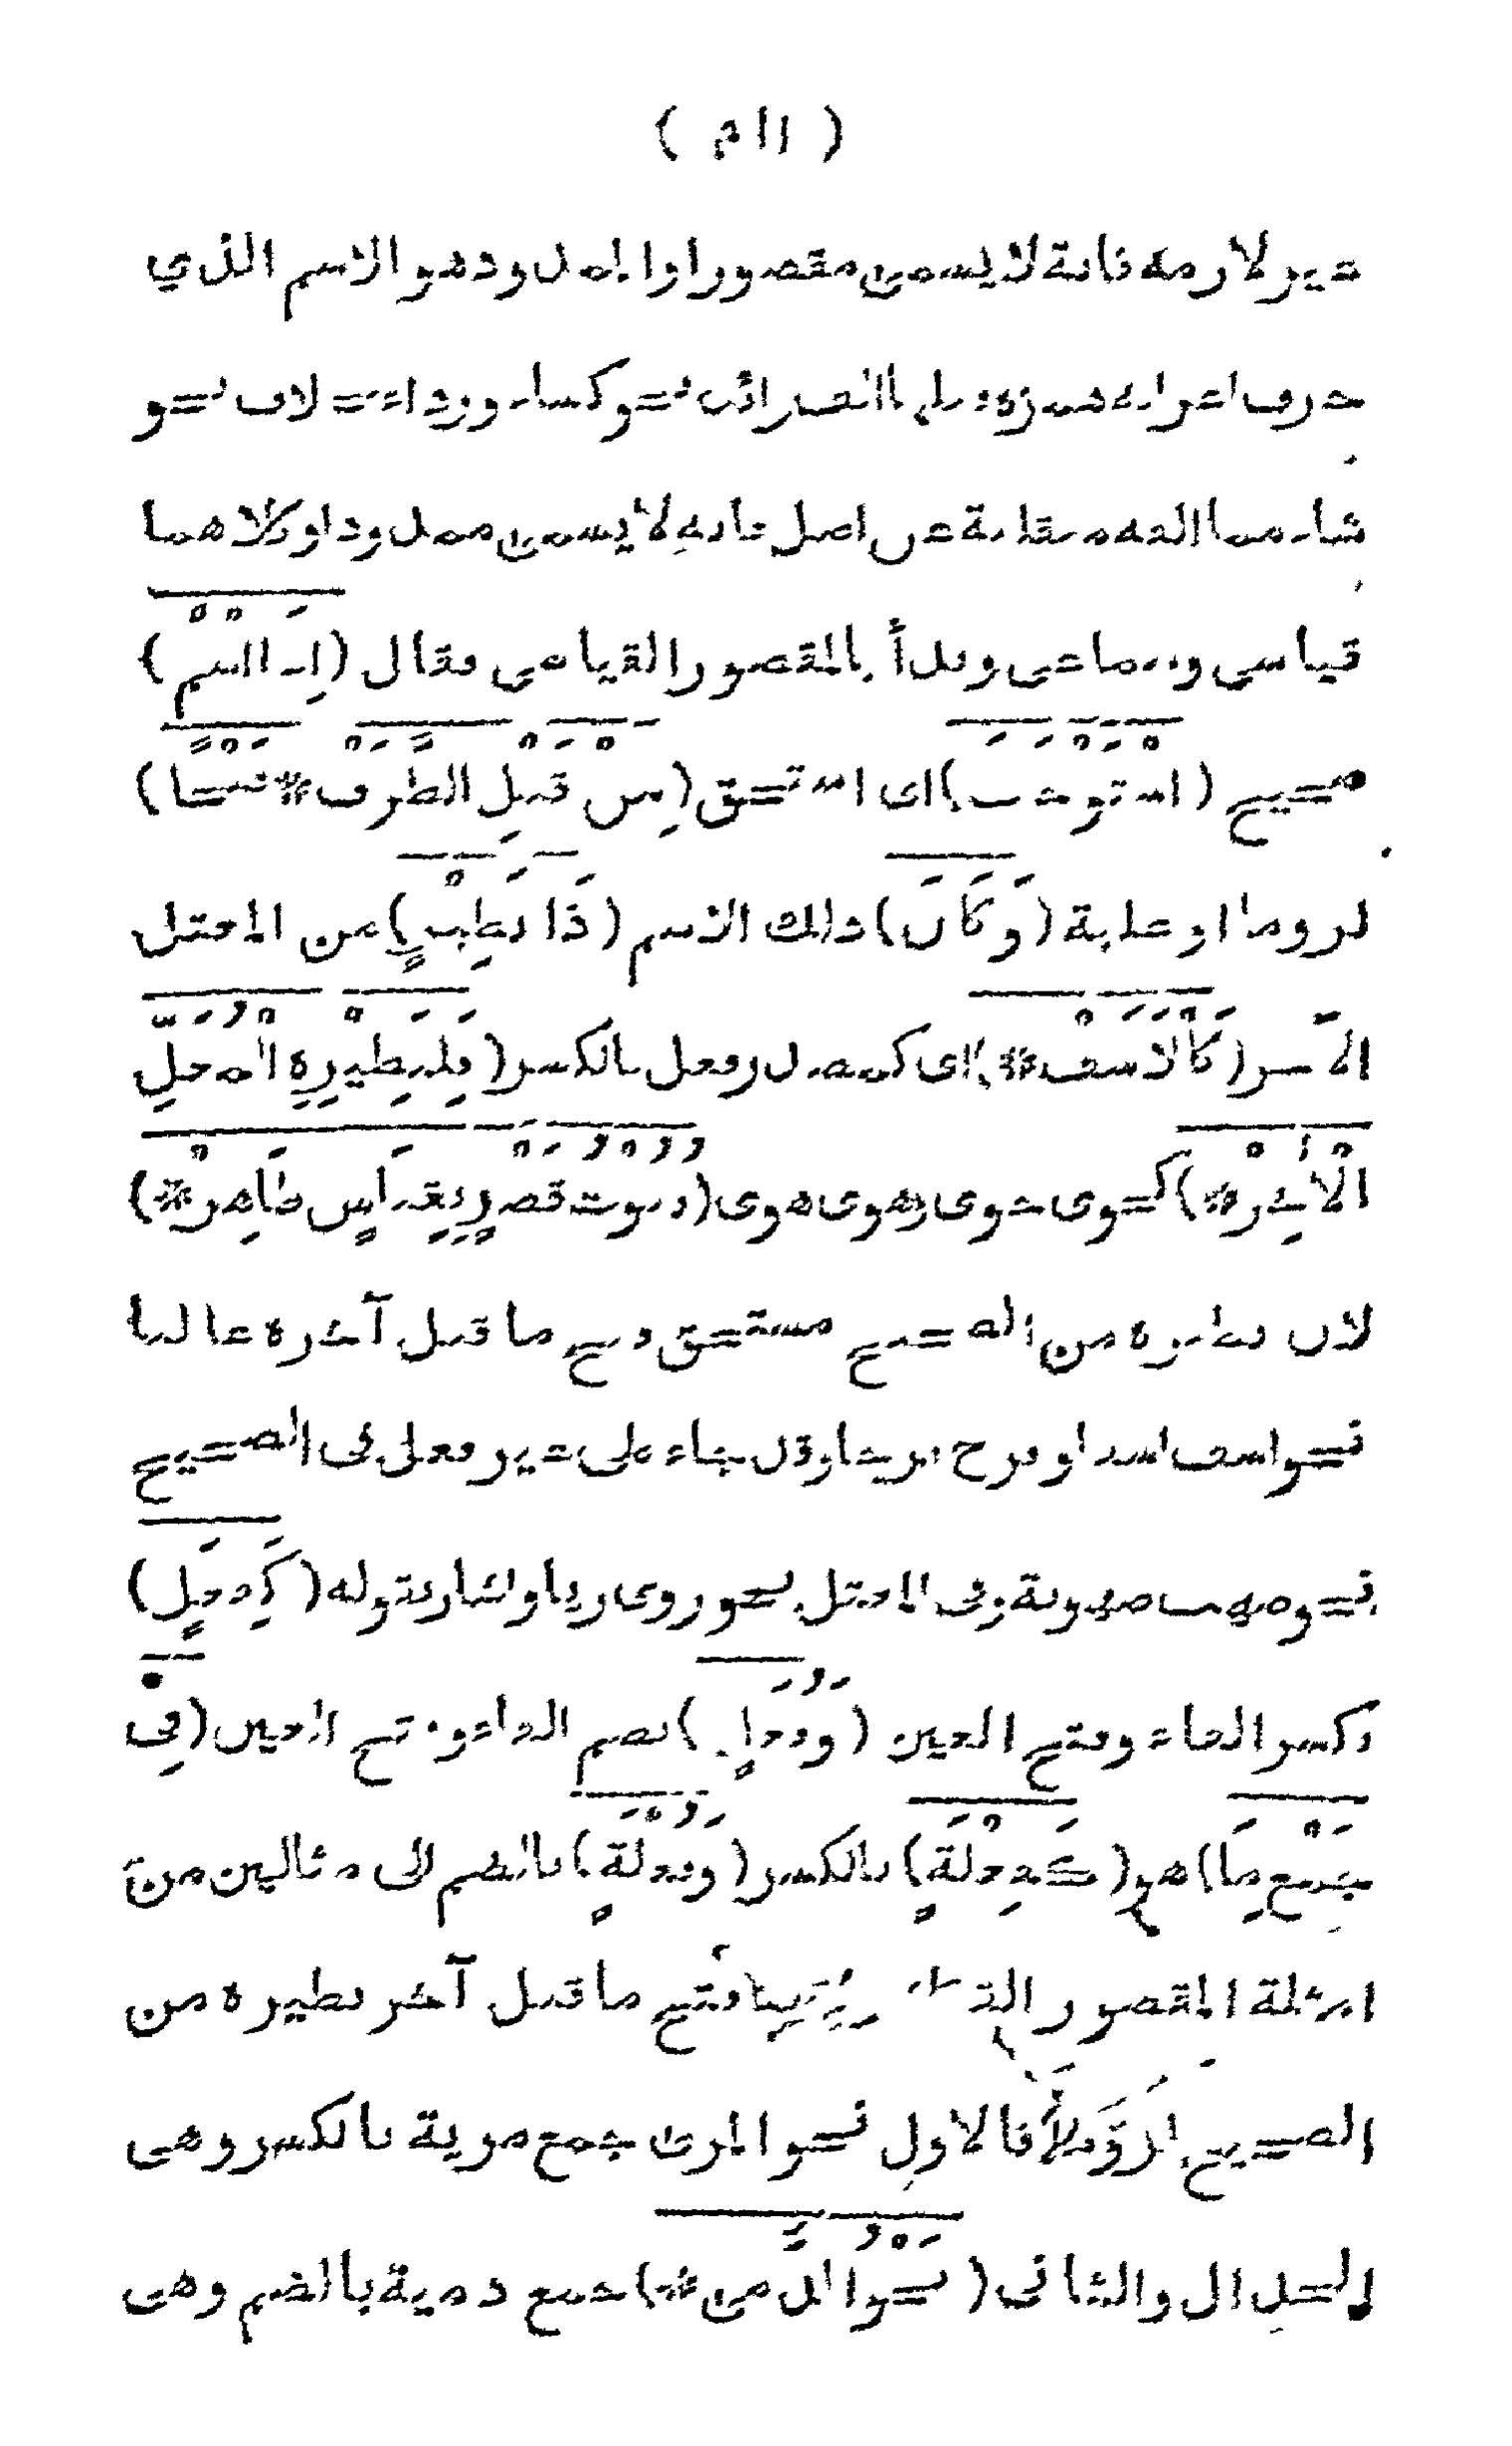 ( ٣١١ )
غير لازمة فانه لا يسمى مقصورا والممدود هو الاسم الذي
حرف اعرابه همزة قبلها الف زائدة نحو كساء ورداء بخلاف نحو
شاء مما الفه منقلبة عن اصل فانه لا يسمى ممدودا وكلاهما
قياسى وسماعى وبدأ بالمقصور القياسى فقال (إذَا اسْمٌ)
صحيح (اسْتَوْجَبَ) اى استحق (مِنْ قَبْلِ الطَّرَفْ * فَتْحًا)
لزوما او غلبة (وَكَانَ) ذلك الاسم (ذَا نَظِيْرٍ) من المعتل
الآخر (كَالْأَسَفْ *) اى كمصدر فعل بالكسر (فَلِنَظِيْرِهِ الْمُعَلِّ
الْآخِرْ *) كجوى جوى وهوى هوى (ثُبُوْتُ قَصْرٍ بِقِيَاسٍ ظَاهِرْ *)
لان نظيره من الصحيح مستحق فتح ما قبل آخره غالبا
نحو اسف اسفا وفرح فرحا وقد جاء على غير فعل فى الصحيح
نحو صهب صهوبة وفى المعتل نحو روى ريا واشار بقوله (كَفِعَلٍ)
بكسر الفاء وفتح العين (وَفُعَلٍ) بضم الفاء وفتح العين (فِى
جَمْعِ مَا) هو (كَفِعْلَةٍ) بالكسر (وَفُعْلَةٍ) بالضم الى مثالين من
امثلة المقصور فتح ما قبل آخر نظيره من
الصحيح فالاول نحو المرى جمع مرية بالكسر وهى
الجدال والثانى (نَحْوُ الدُّمَى *) جمع دمية بالضم وهى